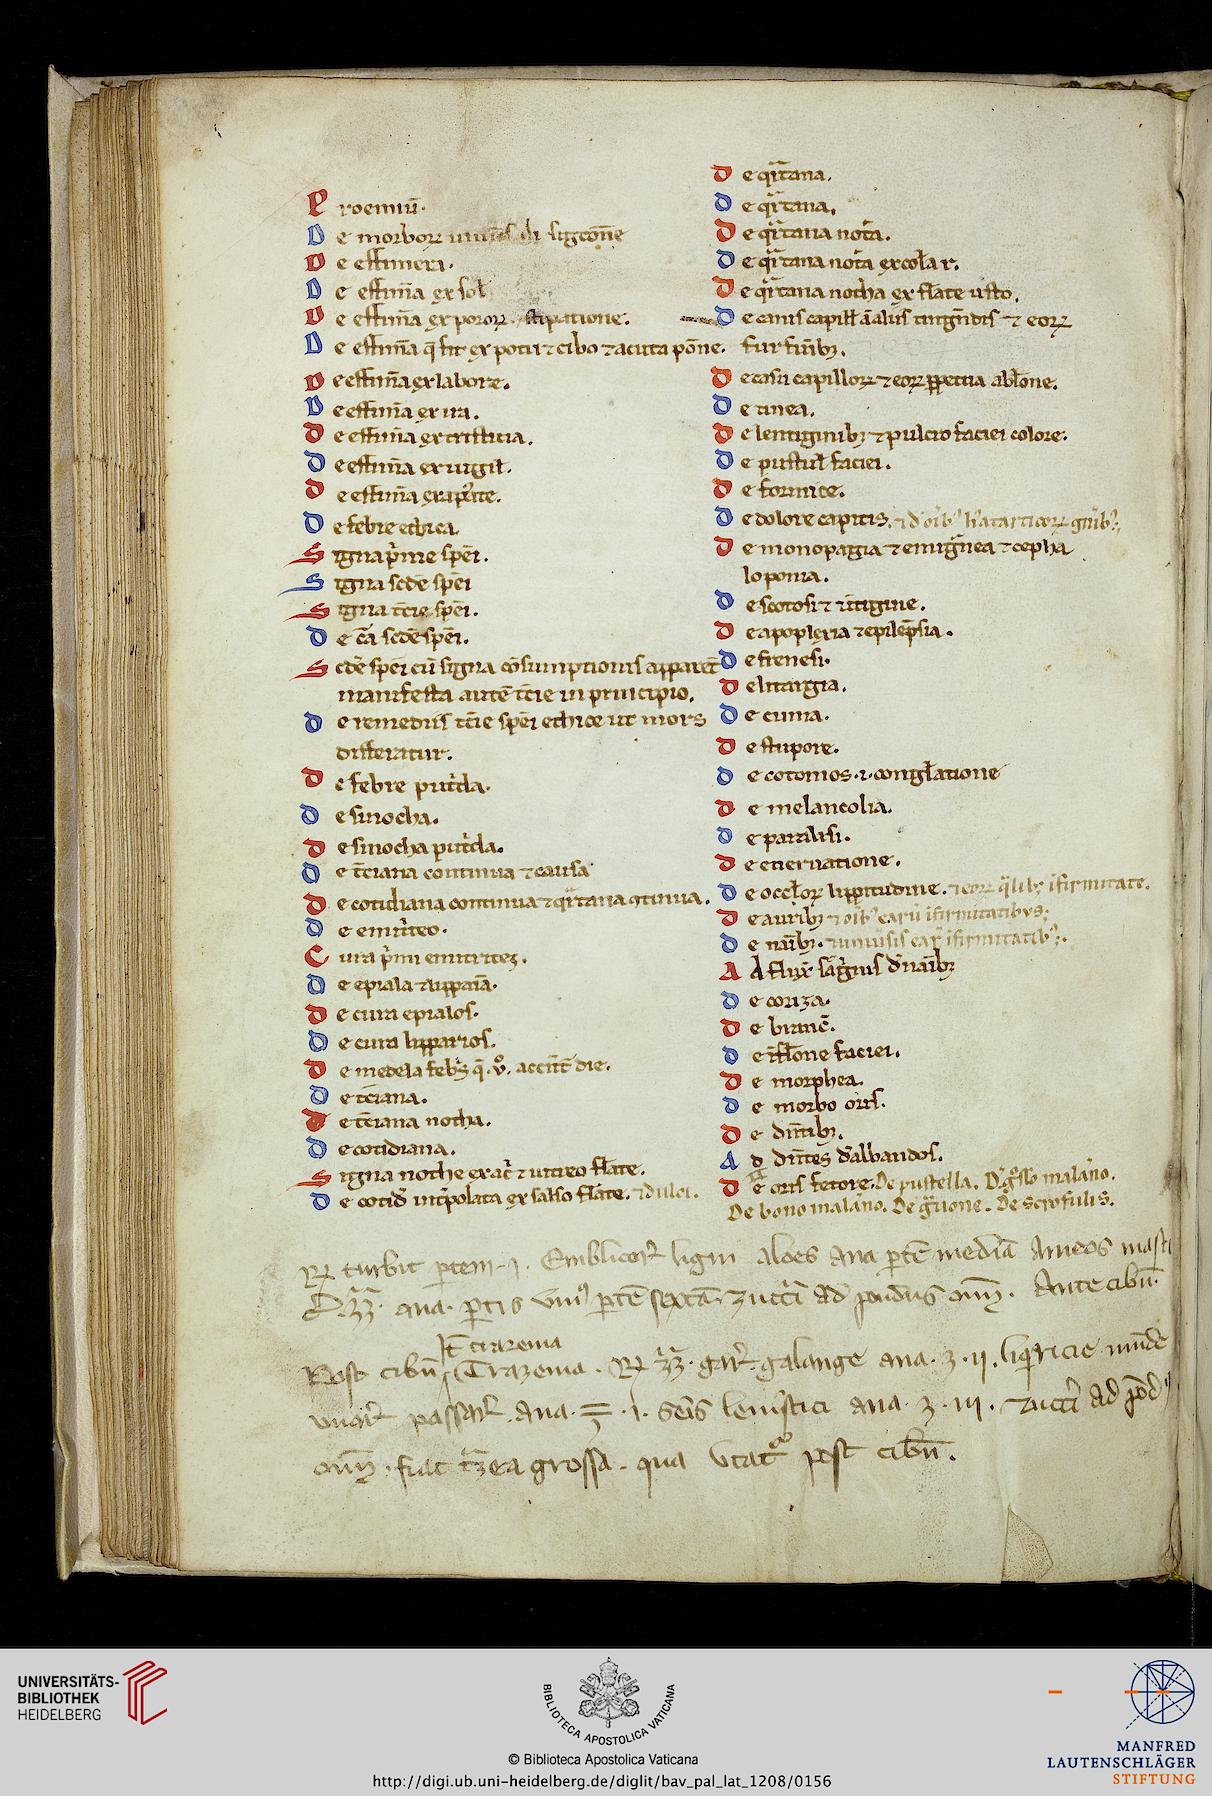 Proemiū.
De morborꝝ
De effimera.
De effim̄a ex sol
De effim̄a ex pororꝝ stipatione.
De effim̄a q̄ fit ex potu ⁊ cibo ⁊ acuta pōne.
De effim̄a ex labore.
De effim̄a ex ira.
De effim̄a ex tristicia.
De effim̄a ex uigil.
De effim̄a
De febre ethica
Signa p̄me spēi.
Signa scd̄e spēi
Signa t̄cie spēi.
De cā scd̄e spēi.
Scd̄e spēi cū signa cōsumptionis apparēt
manifesta autē t̄cie in principio.
De remediis t̄cie spēi ethice ut mors
differatur.
De febre put̄da.
De sinocha.
De sinocha put̄da.
De t̄ciana continua ⁊ causa
De cotidiana continua ⁊ qr̄tana ꝯtinua.
De emit̄teo.
Cura p̄mi emitritei.
De epiala ⁊ lipparia.
De cura epialos.
De cura lipparios.
De medela febrꝫ q̄ .v. die.
De t̄ciana.
De t̄ciana notha.
De cotidiana.
Signa nothe ex ac̄ ⁊ uitreo flāte.
De cotid int̄polata ex salso flāte. ⁊ dulci.
De qr̄tana.
De qr̄tana.
De qr̄tana nota.
De qr̄tana nota ex colar.
De qr̄tana notha ex flāte usto.
De canis capill āalius tingn̄dis ⁊ eorꝝ
furfuribꝫ.
De casu capillorꝝ ⁊ eorꝝ ꝑpetua abl̄one.
De tinea.
De lentiginibꝫ ⁊ pulcro faciei colore.
De pustul faciei.
De formice.
De dolore capitis.
De monopagia ⁊ emigr̄nea ⁊ cepha
loponia.
De scotosi ⁊ ūtigine.
De apoplexia ⁊ epilēpsia.
De frenesi.
De litargia.
De cuma.
De stupore.
De cotomos .i. congl̄atione
De melancolia.
De paralisi.
De eneruatione.
De occl̄orꝝ lippitudine. ⁊ eorꝝ q̄libꝫ īfirmitate.
De auribꝫ ⁊ oībꝰ earū īfirmitatibus;
De narībꝫ. ⁊ uniūsis earꝝ īfirmitatibꝰ;
Ad flux sāguis d narībꝫ
De coriza.
De branc̄.
De īfl̄one faciei.
De morphea.
De morbo oris.
De dn̄tibꝫ.
Ad dn̄tes dalbandos.
De oris fetore. De pustella. malāno.
De bono malāno. De gr̄uone. De scrofulis.
Rꝝ turbit ꝑtem .j. Emblicorꝝ ligni aloes ana ꝑtē mediā Ameos masti
ana. ꝑtis vniꝰ ꝑtē sextā. zucc̄i ad pondus om̄ꝫ. Ante cibū.
It̄ trazema
Post cibū Trazema. Rꝝ gar̄. galange ana. ʒ. ij. liq̄ricie mūde
vuar̄ passar̄. ana. .i. seis leuistici ana. ʒ. iij. zucc̄i ad pōd
om̄ꝫ. fiat tꝫea grossa. qua vtat̄ post cibū.
UNIVERSITÄTS-
BIBLIOTHEK
HEIDELBERG
BIBLIOTECA APOSTOLICA VATICANA
© Biblioteca Apostolica Vaticana
http://digi.ub.uni-heidelberg.de/diglit/bav_pal_lat_1208/0156
MANFRED
LAUTENSCHLÄGER
STIFTUNG